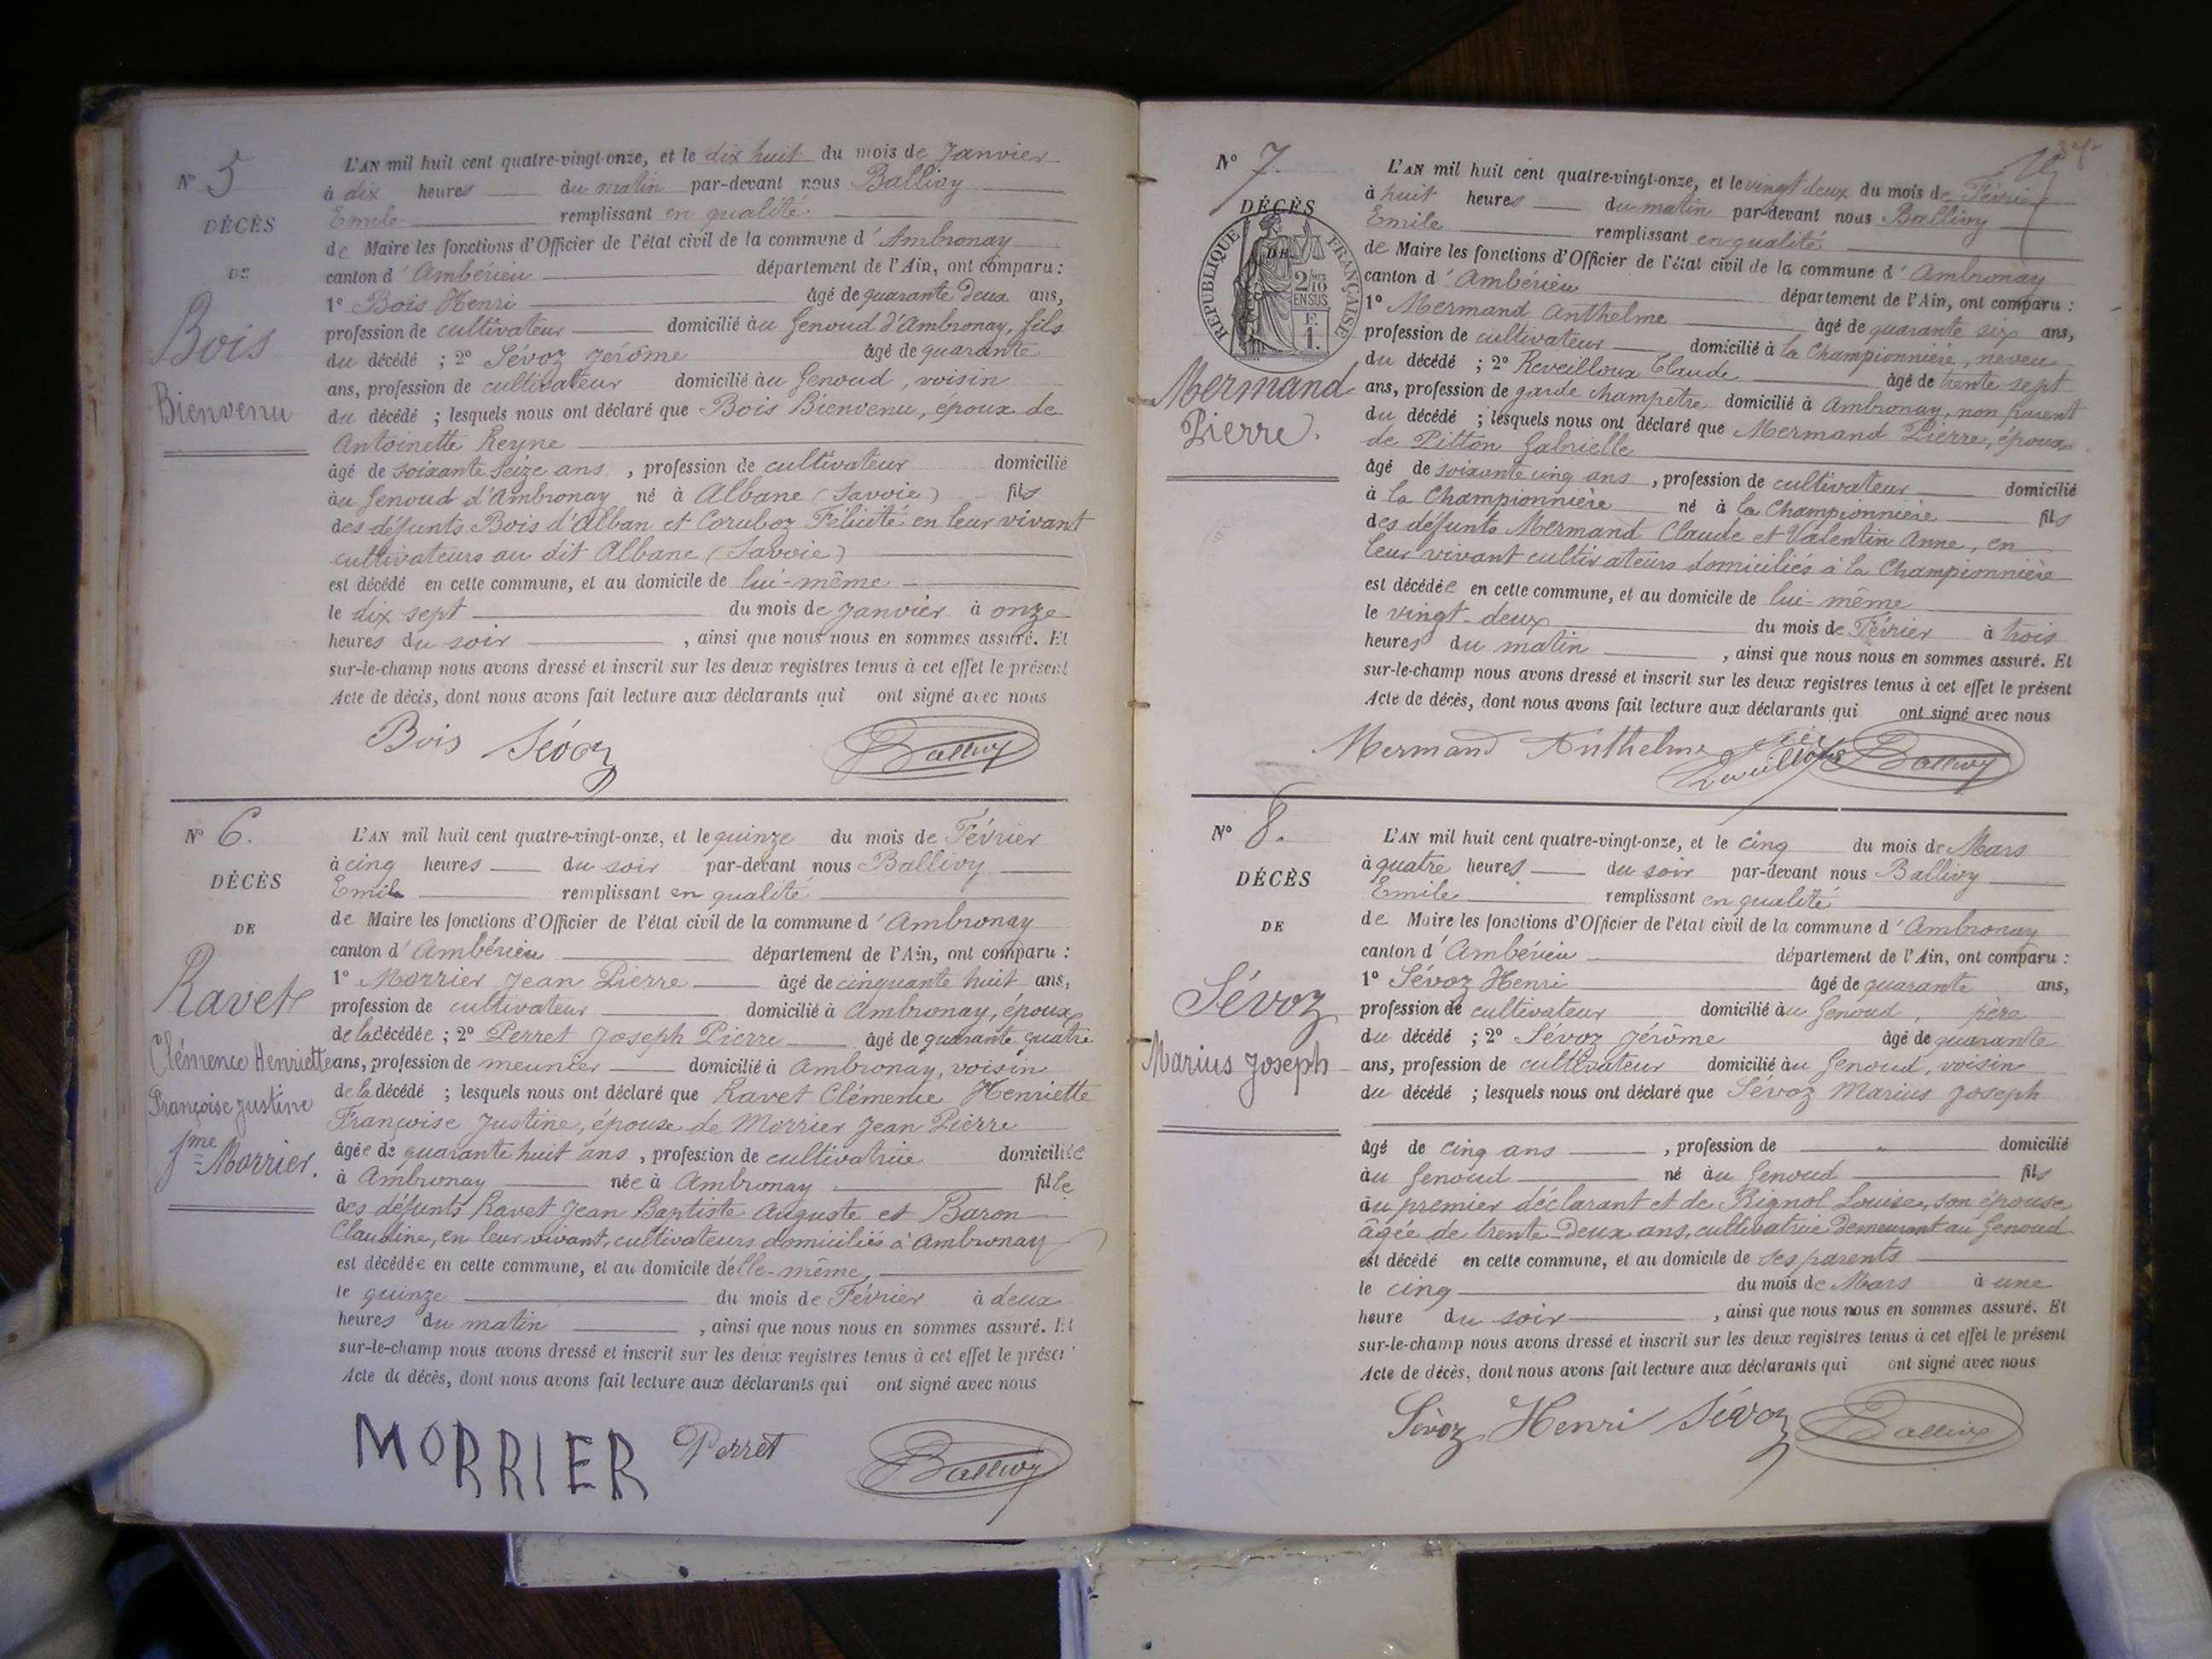 N° 5
DÉCÈS
DE
Bois
Bienvenu
L'AN mil huit cent quatre-vingt-onze, et le dix huit du mois de Janvier
à dix heures du matin par-devant nous Ballivy
Emile remplissant en qualité
de Maire les fonctions d'Officier de l'état civil de la commune d'Ambronay
canton d'Ambérieu département de l'Ain, ont comparu :
1° Bois Henri âgé de quarante deux ans,
profession de cultivateur domicilié au Genoud d'Ambronay, fils
du décédé ; 2° Sévoz Jérôme âgé de quarante
ans, profession de cultivateur domicilié au Genoud, voisin
du décédé ; lesquels nous ont déclaré que Bois Bienvenu, époux de
Antoinette Reyne
âgé de soixante seize ans, profession de cultivateur domicilié
au Genoud d'Ambronay né à Albane (Savoie) fils
des défunts Bois d'Alban et Coruboz Félicité en leur vivant
cultivateurs au dit Albane (Savoie)
est décédé en cette commune, et au domicile de lui-même
le dix sept du mois de Janvier à onze
heures du soir, ainsi que nous nous en sommes assuré. Et
sur-le-champ nous avons dressé et inscrit sur les deux registres tenus à cet effet le présent
Acte de décès, dont nous avons fait lecture aux déclarants qui ont signé avec nous
Bois Sévoz Ballivy
N° 6.
DÉCÈS
DE
Ravet
Clémence Henriette
Françoise Justine
fme Morrier.
L'AN mil huit cent quatre-vingt-onze, et le quinze du mois de Février
à cinq heures du soir par-devant nous Ballivy
Emile remplissant en qualité
de Maire les fonctions d'Officier de l'état civil de la commune d'Ambronay
canton d'Ambérieu département de l'Ain, ont comparu :
1° Morrier Jean Pierre âgé de cinquante huit ans,
profession de cultivateur domicilié à Ambronay, époux
de la décédée ; 2° Perret Joseph Pierre âgé de quarante quatre
ans, profession de meunier domicilié à Ambronay, voisin
de la décédé ; lesquels nous ont déclaré que Ravet Clémence Henriette
Françoise Justine, épouse de Morrier Jean Pierre
âgée de quarante huit ans, profession de cultivatrice domiciliée
à Ambronay née à Ambronay fille
des défunts Ravet Jean Baptiste Auguste et Baron
Claudine, en leur vivant, cultivateurs domiciliés à Ambronay
est décédée en cette commune, et au domicile d'elle-même,
le quinze du mois de Février à deux
heures du matin, ainsi que nous nous en sommes assuré. Et
sur-le-champ nous avons dressé et inscrit sur les deux registres tenus à cet effet le présent
Acte de décès, dont nous avons fait lecture aux déclarants qui ont signé avec nous
MORRIER Perret Ballivy
N° 7.
DÉCÈS
DE
RÉPUBLIQUE FRANÇAISE
2/10
EN SUS
F.
1.
Mermand
Pierre.
L'AN mil huit cent quatre-vingt-onze, et le vingt deux du mois de Février
à huit heures du matin par-devant nous Ballivy
Emile remplissant en qualité
de Maire les fonctions d'Officier de l'état civil de la commune d'Ambronay
canton d'Ambérieu département de l'Ain, ont comparu :
1° Mermand Anthelme âgé de quarante six ans,
profession de cultivateur domicilié à la Championnière, neveu
du décédé ; 2° Reveilloux Claude âgé de trente sept
ans, profession de garde champêtre domicilié à Ambronay, non parent
du décédé ; lesquels nous ont déclaré que Mermand Pierre, époux
de Pitton Gabrielle
âgé de soixante cinq ans, profession de cultivateur domicilié
à la Championnière né à la Championnière fils
des défunts Mermand Claude et Valentin Anne, en
leur vivant cultivateurs domiciliés à la Championnière
est décédée en cette commune, et au domicile de lui-même
le vingt-deux du mois de Février à trois
heures du matin, ainsi que nous nous en sommes assuré. Et
sur-le-champ nous avons dressé et inscrit sur les deux registres tenus à cet effet le présent
Acte de décès, dont nous avons fait lecture aux déclarants qui ont signé avec nous
Mermand Anthelme Reveilloux Ballivy
N° 8.
DÉCÈS
DE
Sévoz
Marius Joseph
L'AN mil huit cent quatre-vingt-onze, et le cinq du mois de Mars
à quatre heures du soir par-devant nous Ballivy
Emile remplissant en qualité
de Maire les fonctions d'Officier de l'état civil de la commune d'Ambronay
canton d'Ambérieu département de l'Ain, ont comparu :
1° Sévoz Henri âgé de quarante ans,
profession de cultivateur domicilié au Genoud, père
du décédé ; 2° Sévoz Jérôme âgé de quarante
ans, profession de cultivateur domicilié au Genoud, voisin
du décédé ; lesquels nous ont déclaré que Sévoz Marius Joseph
âgé de cinq ans, profession de " domicilié
au Genoud né au Genoud fils
du premier déclarant et de Rignol Louise, son épouse
âgée de trente-deux ans, cultivatrice demeurant au Genoud
est décédé en cette commune, et au domicile de ses parents
le cinq du mois de Mars à une
heure du soir, ainsi que nous nous en sommes assuré. Et
sur-le-champ nous avons dressé et inscrit sur les deux registres tenus à cet effet le présent
Acte de décès, dont nous avons fait lecture aux déclarants qui ont signé avec nous
Sévoz Henri Sévoz Ballivy